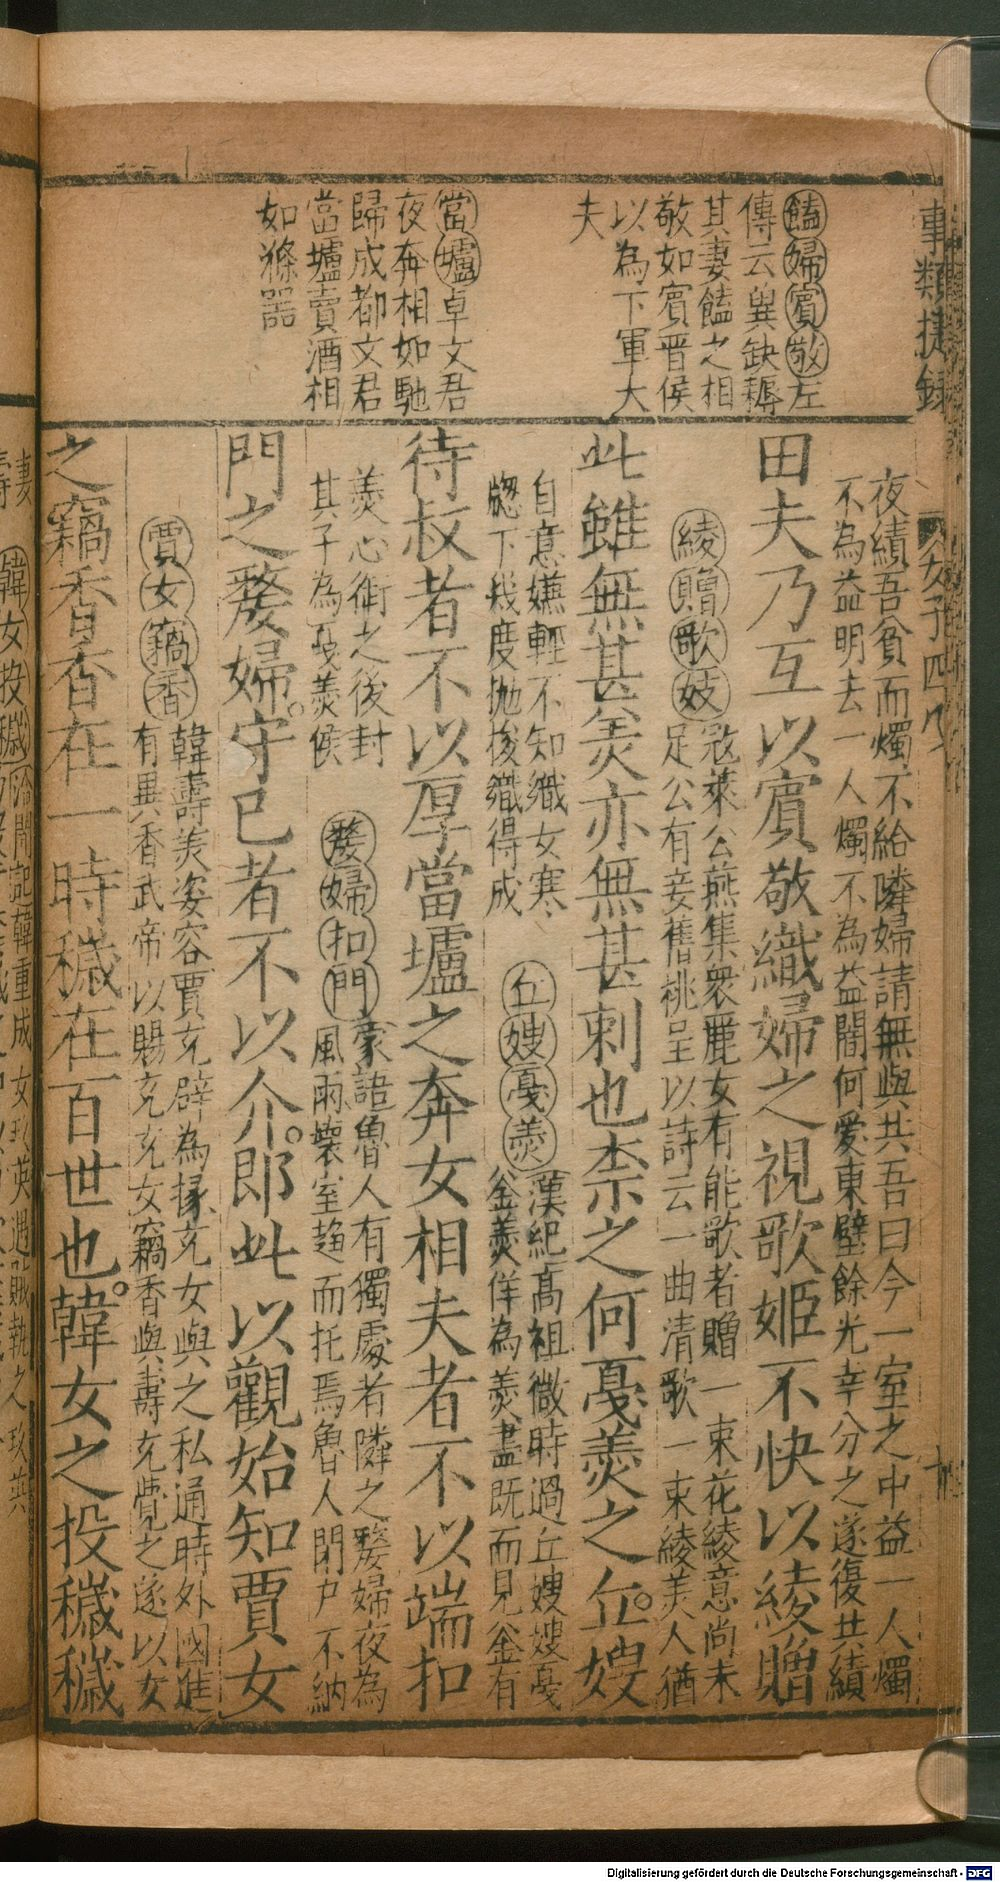 事類捷錄
女子四
饁婦賓敬左
傳云㒷缺耨
其妻饁之相
敬如賓晋侯
以為下軍大
夫
當壚卓文君
夜奔相如馳
歸成都文君
當壚賣酒相
如滌噐
夜績吾貧而燭不給隣婦請無與共吾曰今一室之中益一人燭
不為益明去一人燭不為益闇何愛東壁餘光幸分之遂復共績
田夫乃互以賓敬織婦之視歌姬不快以綾贈
綾贈歌妓
冦萊公燕集衆麗女有能歌者贈一束花綾意尚未
足公有妾舊桃呈以詩云一曲清歌一束綾美人猶
此雖無甚羙亦無甚刺也柰之何戞羹之丘嫂
自意嫌輕不知織女寒
窓下幾度抛梭織得成
丘嫂戞羹
漢紀髙祖微時過丘嫂嫂戞
釜羹佯為羹盡既而見釜有
待叔者不以厚當壚之奔女相夫者不以端扣
羹心銜之後封
其子為戞羹侯
嫠婦扣門
家語魯人有獨處者隣之嫠婦夜為
風雨壞室趨而托焉魯人閉户不納
門之嫠婦守已者不以介郎此以觀始知賈女
賈女竊香
韓壽羙姿容賈充辟為掾充女與之私通時外國進
有異香武帝以賜充充女竊香與壽充覺之遂以女
之竊香香在一時穢在百世也韓女之投穢穢
妻
壽
韓女投穢
洽聞記韓重成女玖英遇賊執之玖英
Digitalisierung gefördert durch die Deutsche Forschungsgemeinschaft - DFG